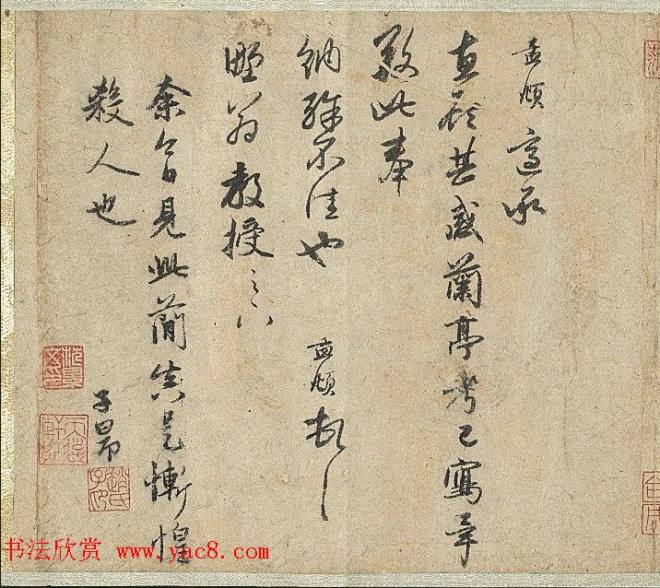 孟頫适承
直夜甚感蘭亭考已寫辛
敬此奉
納殊不佳也
孟頫
野翁教授之下
余今日見此簡真是慚惶
殺人也
子昂
书法欣赏 www.yac8.com